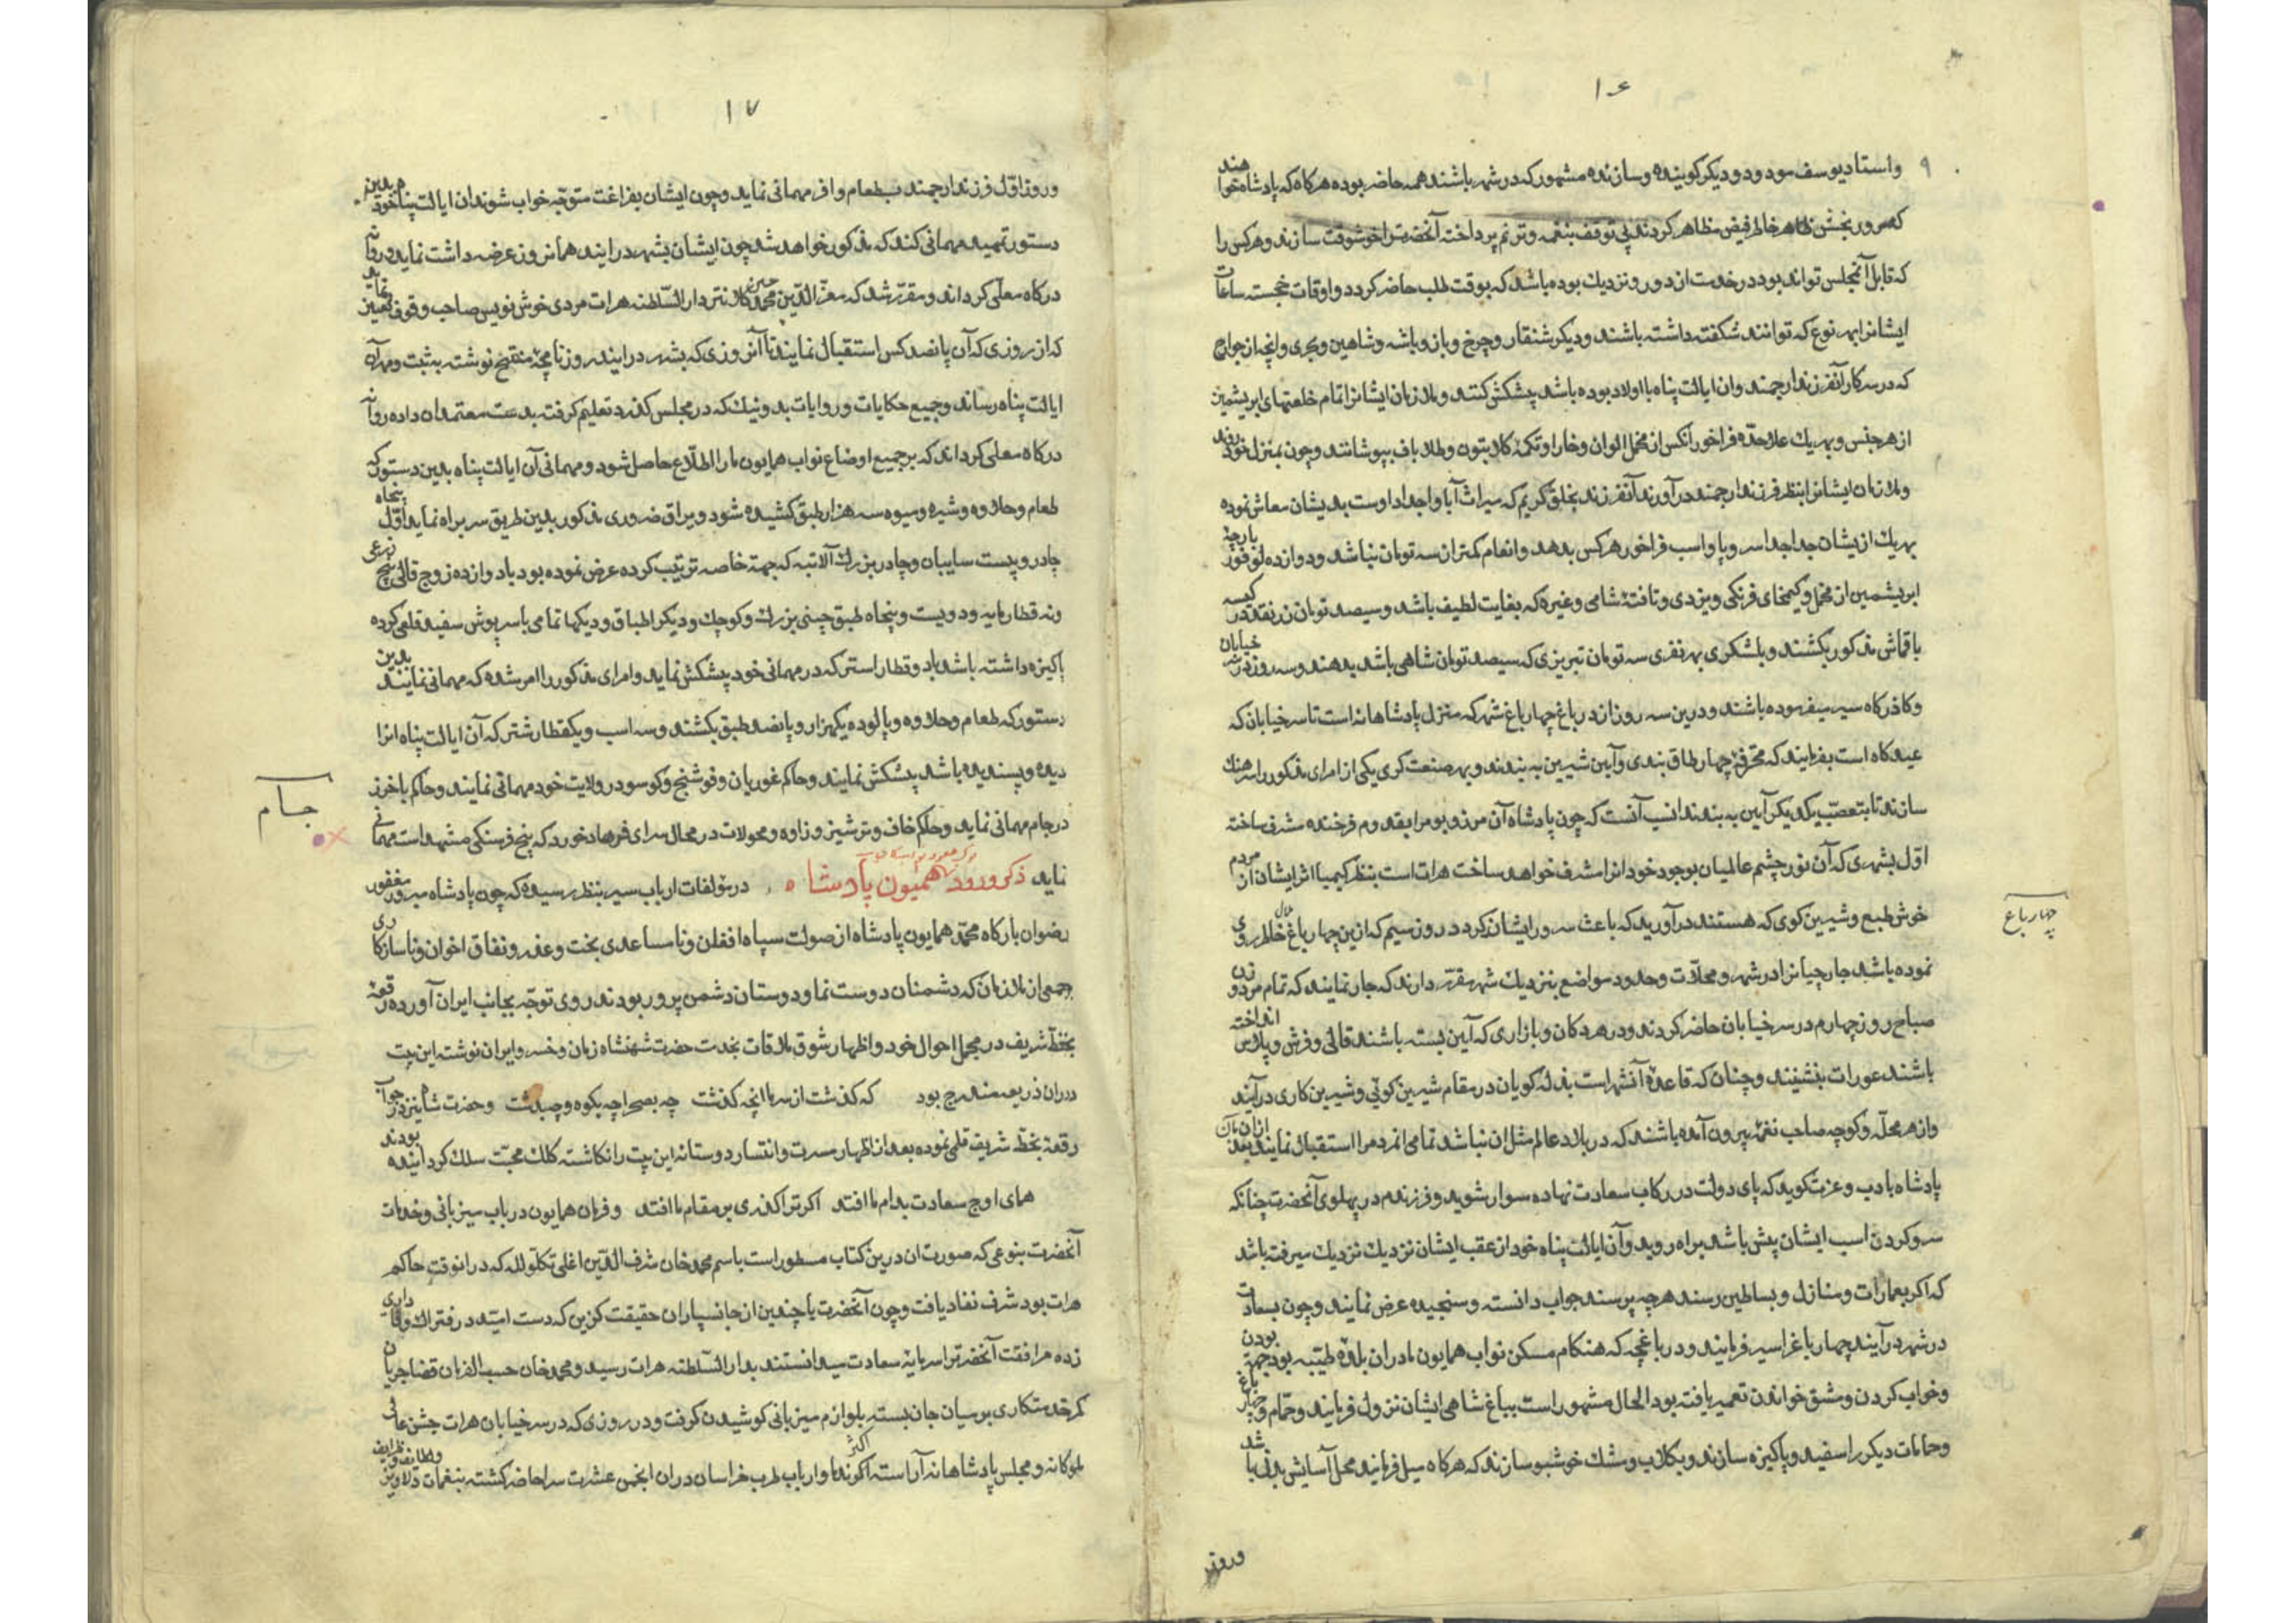 ۱۶
واستاد یوسف مودود و دیکر کوینده و سازنده مشهور که در شهر باشند همه حاضر بوده هرکاه که پادشاه خواهند
که سرور بخش خاطر فیض مظاهر کردند بی توقف بنغمه و ترنم پرداخته آنحضرت را خوشوقت سازند و هرکس را
که قابل آنمجلس تواند بود در خدمت از دور و نزدیك بوده باشد که بوقت طلب حاضر کردد و اوقات خجسته ساعات
ایشانرا بهر نوع که توانند شکفته داشته باشند و دیکر شنقار و چرخ و باز و باشه و شاهین و بحری و انچه از جوارح
که در سرکار آنفرزند ارجمند وان ایالت پناه با اولاد بوده باشد پیشکش کنند و ملازمان ایشانرا تمام خلعتهای ابریشمین
از هر جنس و بهر یك علاحده فراخور انکس از مخمل الوان و خارا و تکمه کلابتون و طلاباف بپوشانند و چون بمنزل خود روند
وملازمان ایشانرا بنظر فرزند ارجمند در آورند آنفرزند بخلق کریم که میراث آبا و اجداد اوست بدیشان معاش نموده
بهر یك ازیشان جدا جدا سر و پا و اسب فراخور هرکس بدهد و انعام کمتر از سه تومان نباشد و دوازده تقوز پارچه
ابریشمین از مخمل و کیمخای فرنکی و یزدی و تافته شامی و غیره که بغایت لطیف باشد و سیصد تومان زر نقد در کیسه
با قماش مذکور بکشند و بلشکری بهر نفری سه تومان تبریزی که سیصد تومان شاهی باشد بدهند و سه روز در سر خیابان
و کاذرکاه سیر میفرموده باشند و درین سه روز از در باغ چهار باغ شهر که منزل پادشاهانه است تا سر خیابان که
عیدکاه است بفرمایند که محترفه چهار طاق بندی و آیین شیرین به بندند و بهر صنعت کری یکی از امرای مذکور را سرهنك
سازند تا بتعصب یکدیکر آیین به بندند انسب آنست که چون پادشاه آن مرز و بوم را بقدوم فرخنده مشرف ساخته
اول بشهری که آن نور چشم عالمیان بوجود خود انرا مشرف خواهد ساخت هرات است بنظر کیمیا اثر ایشان از مردم
خوش طبع و شیرین کوی که هستند در آورید که باعث سرور ایشان کردد در روز سیم که ازین چهار باغ خیال سر وی
نموده باشد جارچیانرا در شهر و محلات و حدود مواضع نزدیك شهر مقرر دارند که جار نمایند که تمام مرد و زن
صباح روز چهارم در سر خیابان حاضر کردند و در هر دکان و بازاری که آیین بسته باشند قالی و فرش و پلاس انداخته
باشند عورات بنشینند و چنان که قاعده آنشهر است بذله کویان در مقام شیرین کوئی و شیرین کاری در آیند
واز هر محله و کوچه صاحب نغمه بیرون آمده باشند که در بلاد عالم مثل ان نباشد تمامی انمردم را استقبال نمایند بعد ازان
پادشاه با دب و عزت کوید که پای دولت در رکاب سعادت نهاده سوار شوید و فرزندم در پهلوی آنحضرت چنانکه
سر و کردن اسب ایشان پیش باشد براه روید و آن ایالت پناه خود از عقب ایشان نزدیك نزدیك میرفته باشد
که اکر بعمارات و منازل و بساطین رسند هرچه پرسند جواب دانسته و سنجیده عرض نمایند و چون بسعادت
در شهر در آیند چهار باغ را سیر فرمایند و در باغچه که هنکام مسکن نواب همایون ما در ان بلده طیبه بود جهة بودن
و خواب کردن و مشق خواندن تعمیر یافته بود الحال مشهور است بباغ شاهی ایشان نزول فرمایند و حمام و چهار باغ
و حمامات دیکر را سفید و پاکیزه سازند و بکلاب و مشك خوشبو سازند که هرکاه میل فرمایند محل آسایش بدنی باشد
چهار باغ
۱۷
و روز اول فرزند ارجمند بطعام وافر مهمانی نماید و چون ایشان بفراغت متوجه خواب شوند ان ایالت پناه خود بدین
دستور تمهید مهمانی کند که مذکور خواهد شد چون ایشان بشهر در ایند همانروز عرضه داشت نماید و روانه
درکاه معلی کرداند و مقرر شد که معز الدین محمد حسین کلانتر دار السلطنه هرات مردی خوش نویس صاحب وقوف تعیین نماید
که از روزی که آن پانصد کس استقبال نمایند تا آنروزی که بشهر در ایند روزنامچه منقح نوشته به ثبت و مهر آن
ایالت پناه رساند و جمیع حکایات و روایات بد و نیك که در مجلس کذرد تعلیم کرفته بدست معتمدان داده روانه
درکاه معلی کرداند که بر جمیع اوضاع نواب همایون ما را اطلاع حاصل شود و مهمانی آن ایالت پناه بدین دستور که
طعام و حلاوه و شیره و میوه سه هزار طبق کشیده شود و یراق ضروری مذکور بدین طریق سر براه نماید اول پنجاه
چادر و بیست سایبان و چادر بزرك آلاتبه که جهة خاصه ترتیب کرده عرض نموده بود با دوازده زوج قالی پنج ذرعی
و نه قطار مایه و دویست و پنجاه طبق چینی بزرك و کوچك و دیکر اطباق و دیکها تمامی با سرپوش سفید قلعی کرده
پاکیزه داشته باشد با دو قطار استر که در مهمانی خود پیشکش نماید و امرای مذکور را امر شده که مهمانی نمایند بدین
دستور که طعام و حلاوه و پالوده یکهزار و پانصد طبق بکشند و سه اسب و یکقطار شتر که آن ایالت پناه انرا
دیده و پسندیده باشد پیشکش نمایند و حاکم غوریان و فوشنج و کوسو در ولایت خود مهمانی نمایند و حاکم باخرز
در جام مهمانی نماید و حاکم خاف و ترشیز و زاوه و محولات در محال سرای فرهاد خورد که پنج فرسنکی مشهد است مهمانی
نماید ذکر ورود همیون پادشاه در مؤلفات ارباب سیر بنظر رسیده که چون پادشاه مبرور مغفور
رضوان بارکاه محمد همایون پادشاه از صولت سپاه افغان و نا مساعدی بخت و غدر و نفاق اخوان و ناسازکاری
جمعی از ملازمان که دشمنان دوست نما و دوستان دشمن پرور بودند روی توجه بجانب ایران آورده رقعه
بخط شریف در مجمل احوال خود و اظهار شوق ملاقات بخدمت حضرت شهنشاه زمان و خسرو ایران نوشته این بیت
در ان ذریعه مندرج بود که کذشت از سر ما انچه کذشت چه بصحرا چه بکوه و چه بدشت و حضرت شاه نیز در جواب
رقعه بخط شریف قلمی نموده بعد از اظهار مسرت و انتسار دوستانه این بیت را نکاشته کلك محبت سلك کردانیده بودند
همای اوج سعادت بدام ما افتد اکر ترا کذری بر مقام ما افتد و فرمان همایون در باب میزبانی و خدمات
آنحضرت بنوعی که صورت ان درین کتاب مسطور است باسم محمد خان شرف الدین اغلی تکلو لله که در انوقت حاکم
هرات بود شرف نفاد یافت و چون آنحضرت با چندین از جانسپاران حقیقت کزین که دست امید در فتراك وفاداری
زده مرافقت آنحضرترا سرمایه سعادت میدانستند بدار السلطنه هرات رسید و محمد خان حسب الفرمان قضا جریان
کمر خدمتکاری بر میان جان بسته بلوازم میزبانی کوشیدن کرفت و در روزی که در سر خیابان هرات جشن عالی
ملوکانه و مجلس پادشاهانه آراسته اکثر و ارباب طرب خراسان در ان انجمن عشرت سرا حاضر کشته بنغمات دلاویز
جام
وروز